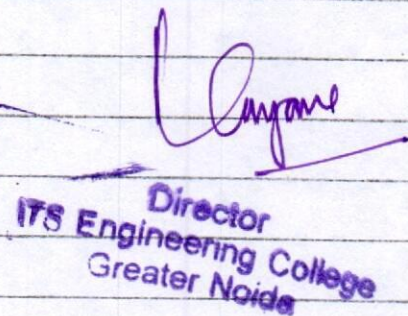 Director
ITS Engineering College
Greater Noida